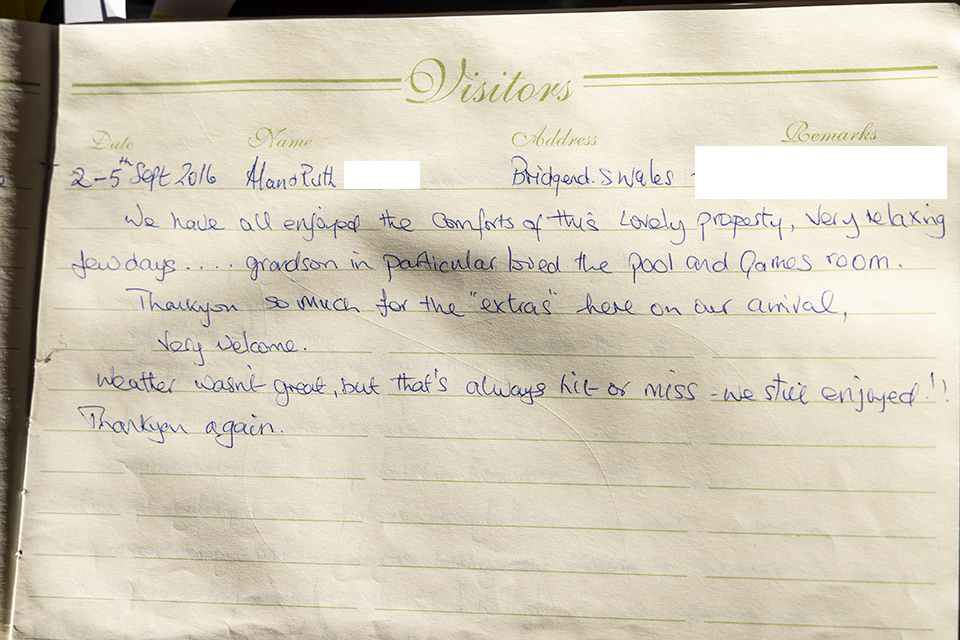 Visitors
Date Name Address Remarks
2-5th Sept 2016 Alan & Ruth Bridgend. S Wales -
We have all enjoyed the comforts of this Lovely property, very relaxing
few days .... grandson in particular loved the pool and Games room.
Thankyou so much for the "extras" here on our arrival,
very welcome.
Weather wasn't great, but that's always hit or miss - we still enjoyed!!
Thankyou again.